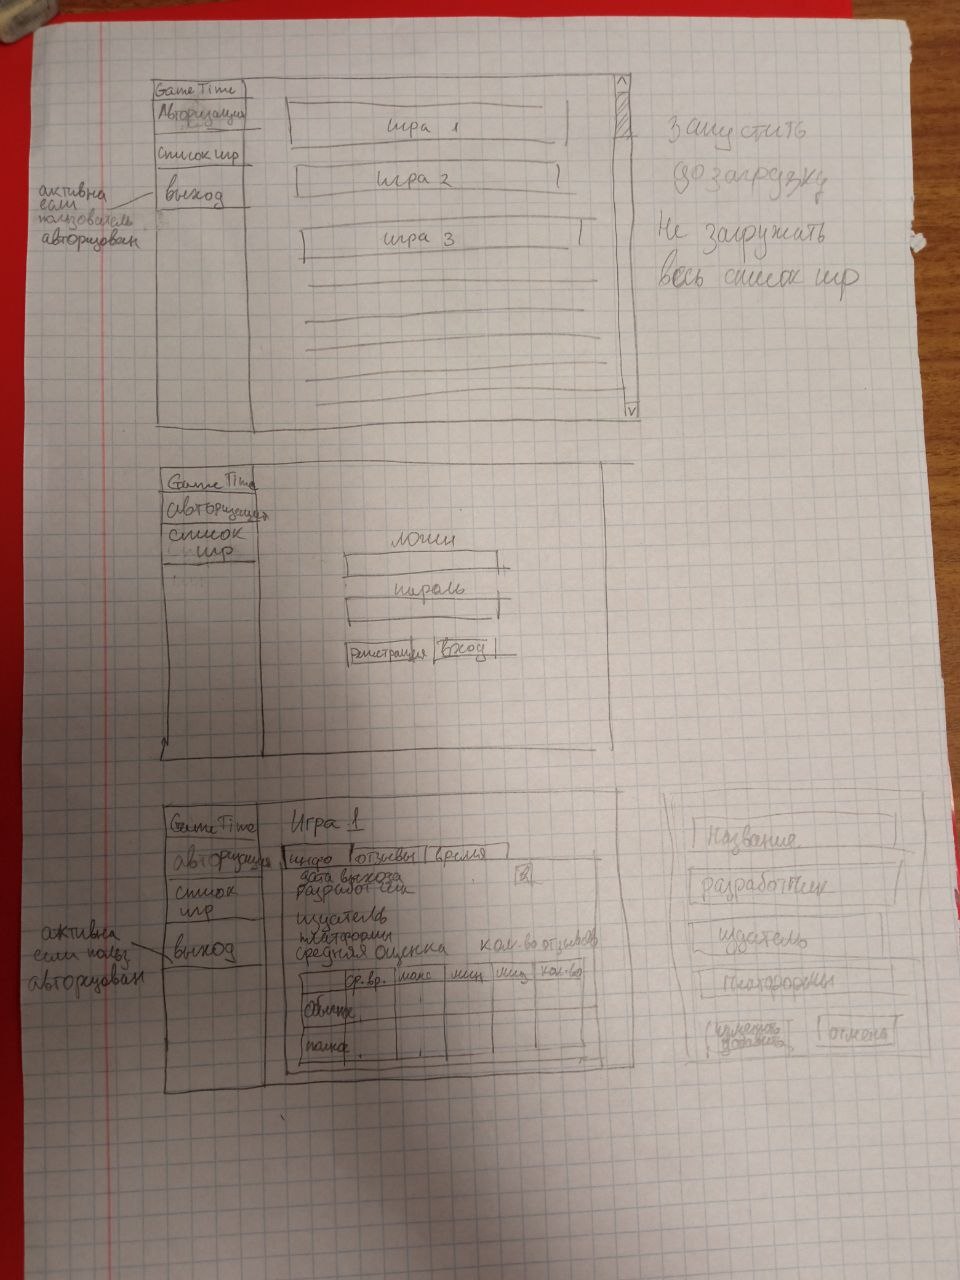 GameTime
Авторизация
Список игр
выход
активна
если
пользователь
авторизован
игра 1
игра 2
игра 3
Запустить
дозагрузку
Не загружать
весь список игр
GameTime
авторизация
список
игр
логин
пароль
регистрация
вход
GameTime
авторизация
список
игр
выход
активна
если польз
авторизован
Игра 1
инфо отзывы время
дата выхода
разработчик
издатель
платформы
средняя оценка кол-во отзывов
ср.вр. макс мин кол-во
Название
разработчик
издатель
платформы
изменить
добавить
отмена